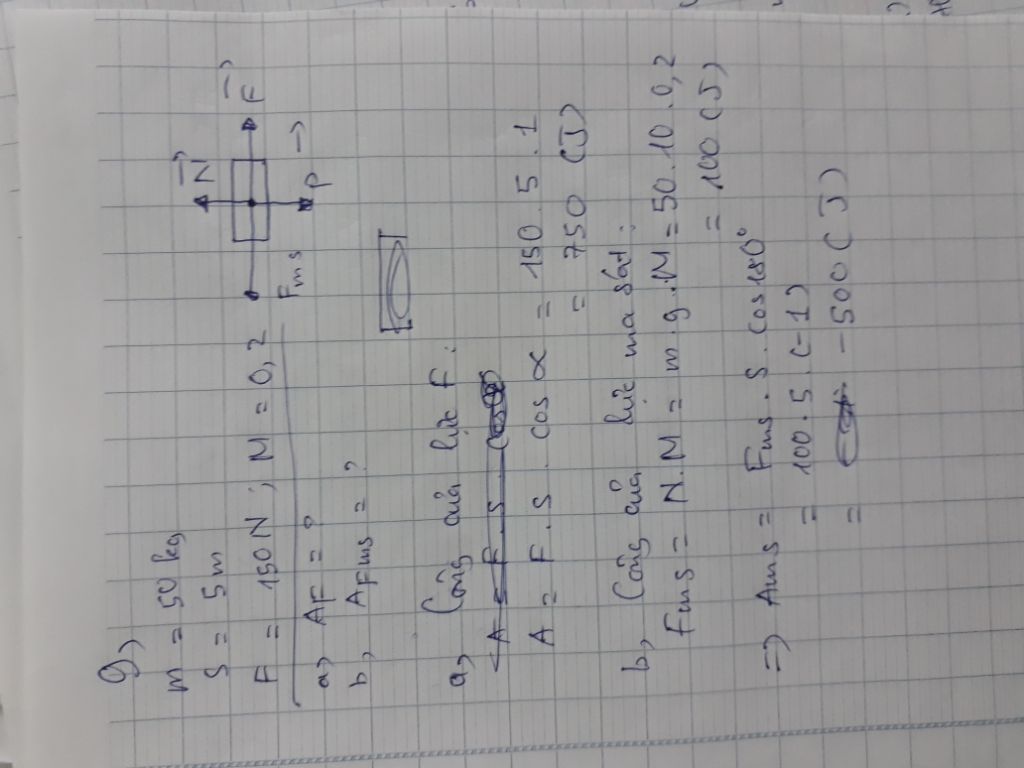 9)
m = 50 kg
S = 5 m
F = 150 N ; M = 0,2
N
F
P
Fms
a, AF = ?
b, AFms = ?
a, Công của lực F :
A = F . S . cos
A = F . S . cos α = 150 . 5 . 1
= 750 (J)
b, Công của lực ma sát :
Fms = N . M = m . g . M = 50 . 10 . 0,2
= 100 (J)
=) Ams = Fms . S . cos 180°
= 100 . 5 . (-1)
= -500 (J)